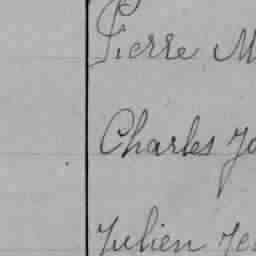 Pierre M
Charles Jo
Julien Je